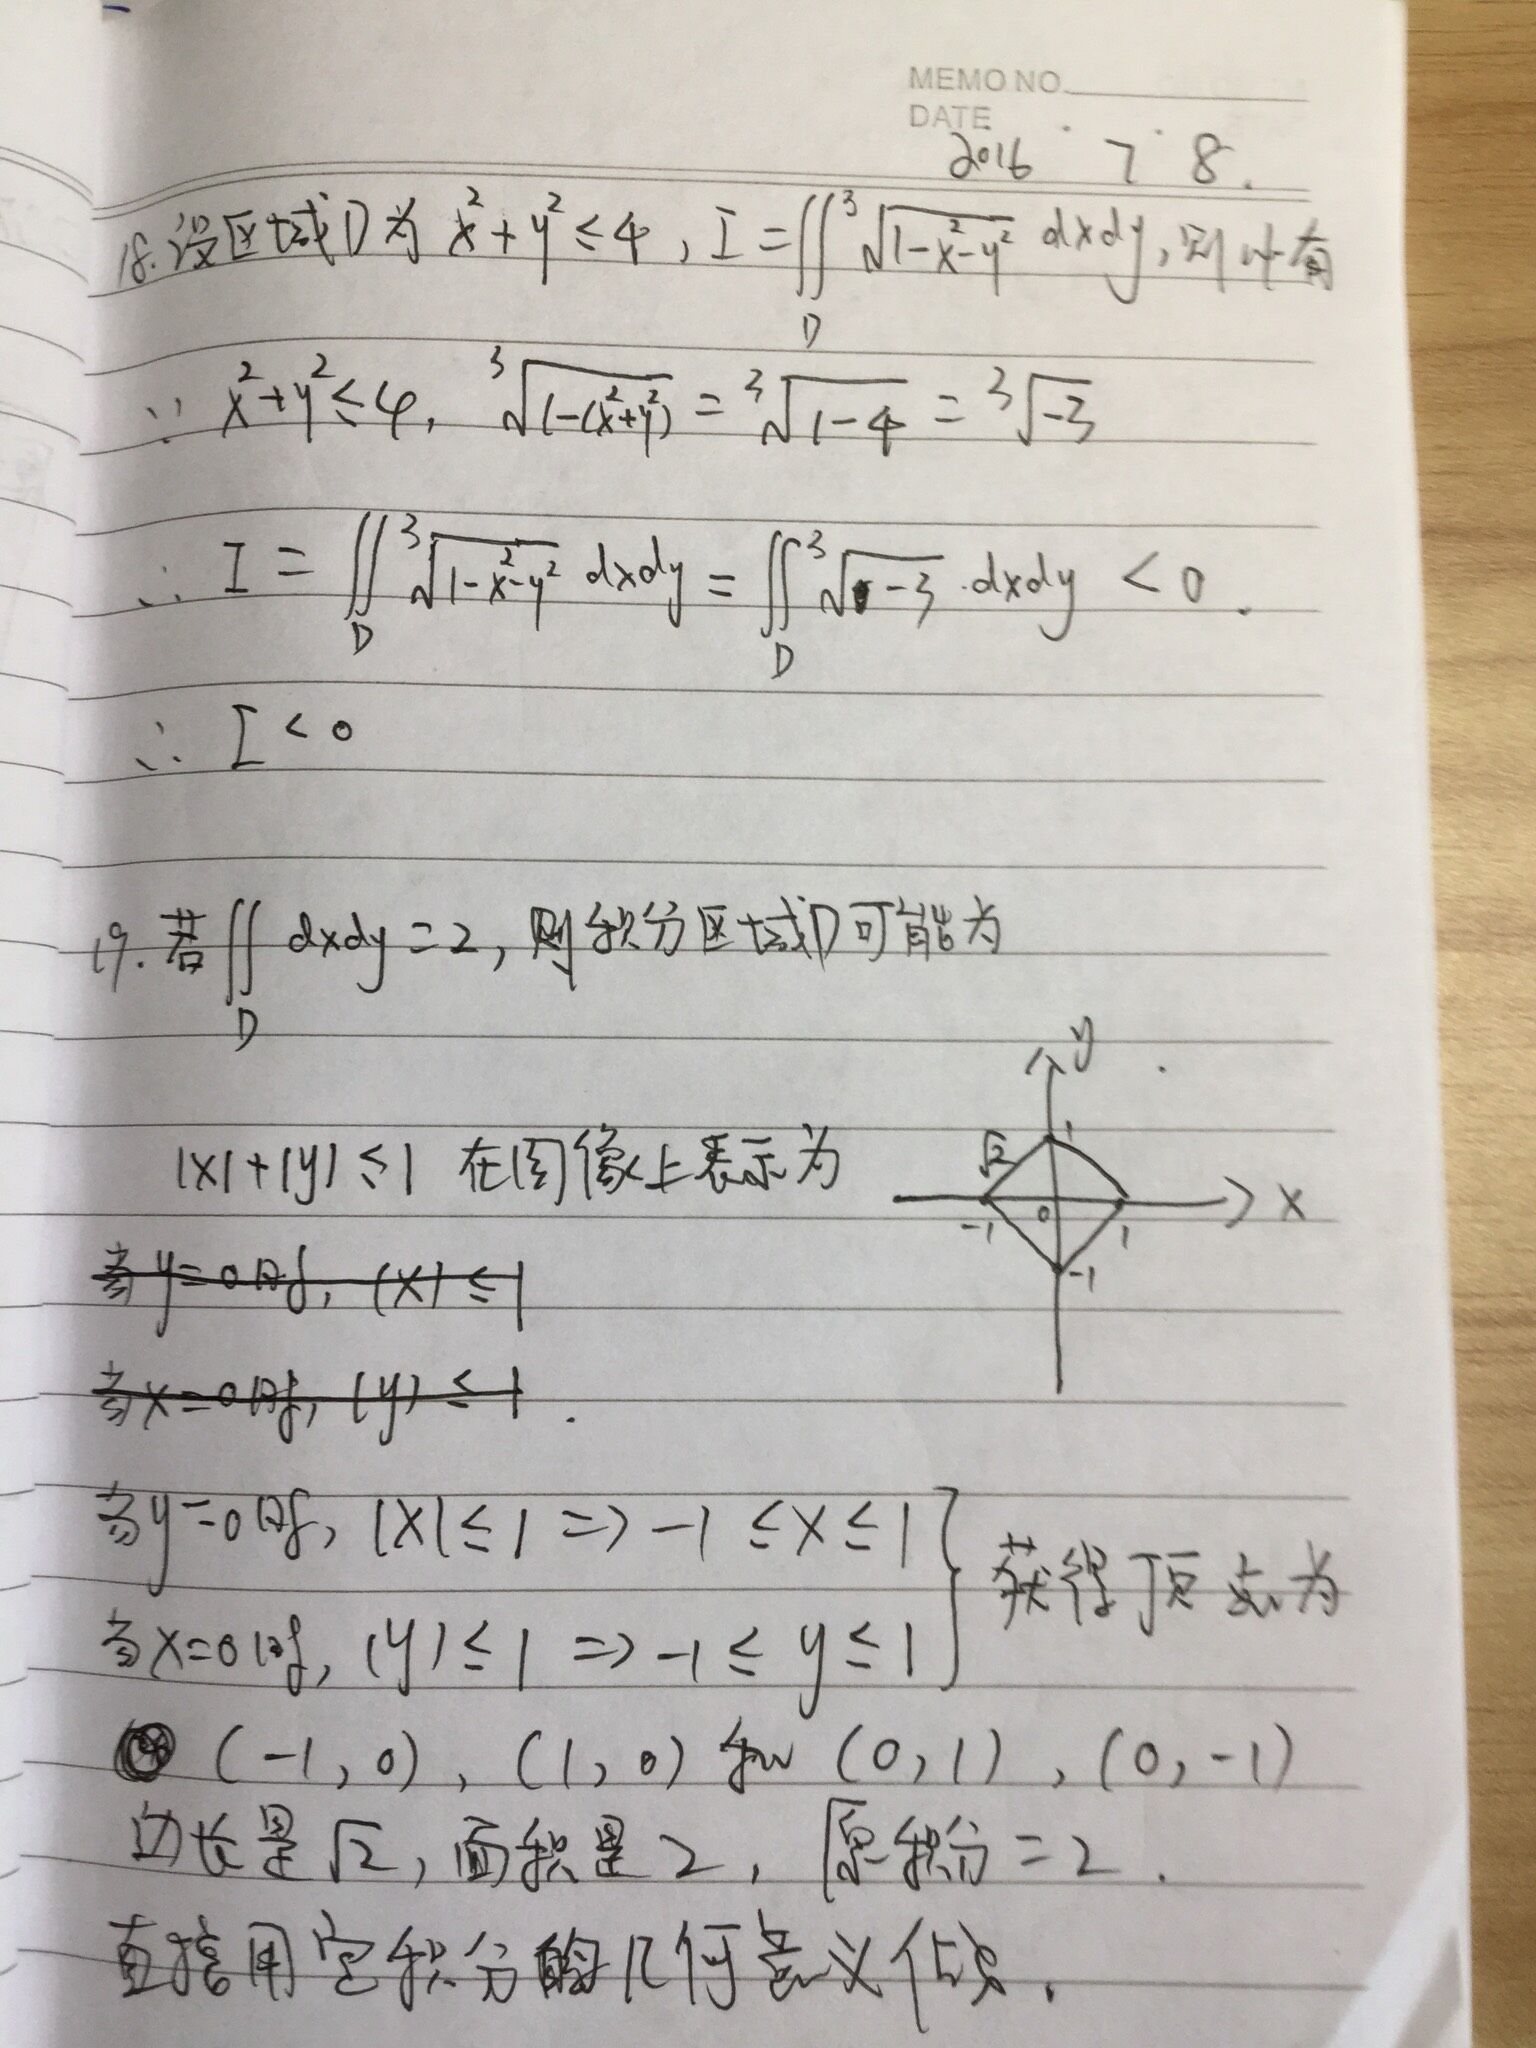 MEMO NO.
DATE
2016 7 8.
18.设区域D为 x²+y²≤4, I=∬_D ³√(1-x²-y²) dxdy, 则必有
∵ x²+y²≤4, ³√(1-(x²+y²)) = ³√(1-4) = ³√(-3)
∴ I = ∬_D ³√(1-x²-y²) dxdy = ∬_D ³√(-3) ·dxdy < 0.
∴ I < 0
19.若∬_D dxdy=2, 则积分区域D可能为
|x|+|y|≤1 在图像上表示为
y
1
√2
-1 0 1 x
-1
当y=0时, |x|≤1
当x=0时, |y|≤1.
当y=0时, |x|≤1 => -1≤x≤1
当x=0时, |y|≤1 => -1≤y≤1 } 获得顶点为
(-1,0), (1,0) 和 (0,1), (0,-1)
边长是√2, 面积是2, 原积分=2.
直接用定积分的几何意义做.